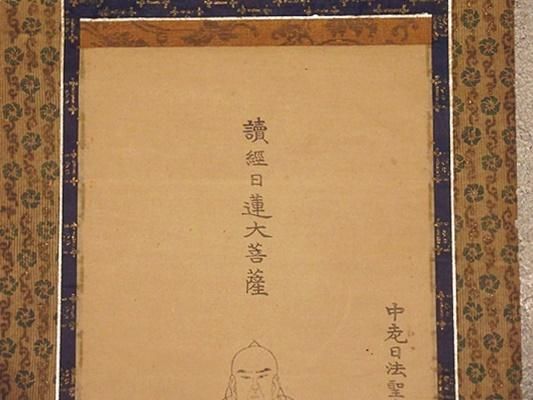 讀經日蓮大菩薩
中老日法聖